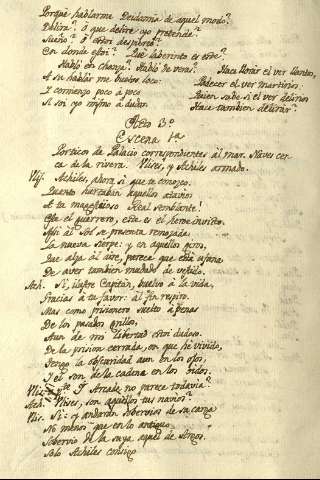 Porque hablarme Deidamia de aquel modo?
Delira? ó que delire yo pretende?
Sueño? ó estoi despierto?
En donde estoi? Que laberinto es este?
Habló en chanza? Habló de veras?
Hace llorar el ver llantos,
A su hablar me buelvo loco:
Padecer el ver martirios.
Y comienzo poco à poco
Quien sabe si el ver delirios
Si soi yo mismo à dudar.
Hace tambien delirar?
Acto 3º
Escena 1ª
Porticos de Palacio correspondientes al mar. Naves cer
ca de la rivera. Ulises, y Achiles armado.
Ulis. Achiles, ahora si que te conozco.
Quanto hurtaban aquellos atavios
A tu magestuoso Real semblante!
Este el guerrero, este es el heroe invicto.
Assi al Sol se presenta remozada
La nueva sierpe: y en aquellos giros,
Que alza al aire, parece que está ufana
De aver tambien mudado de vestido.
Ach. Si, ilustre Capitan, buelvo à la vida,
Gracias à tu favor: al fin respiro.
Mas como prisionero suelto apenas
De los pasados grillos,
Aun de mi libertad estoi dudoso.
De la prision cerrada, en que he vivido,
Tengo la obscuridad aun en los ojos,
Y el son de la cadena en los oidos.
Ulis. Y Arcade no parece todavia?
Ach. Ulises, son aquellos tus navios?
Ulis. Si: y andarán sobervios de su carga
No menos que en lo antiguo
Sobervio de la suya aquel de Argos.
Solo Achiles consigo